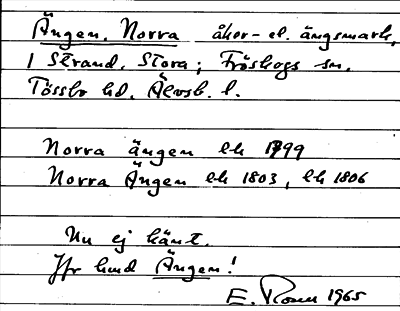 Ängen, Norra åker- el. ängsmark,
i Strand, Stora; Fröskogs sn.
Tössbo hd. Älvsb. l.
Norra ängen lh 1799
Norra Ängen lh 1803, lh 1806
Nu ej känt.
Jfr hmd Ängen!
E. Rosén 1965